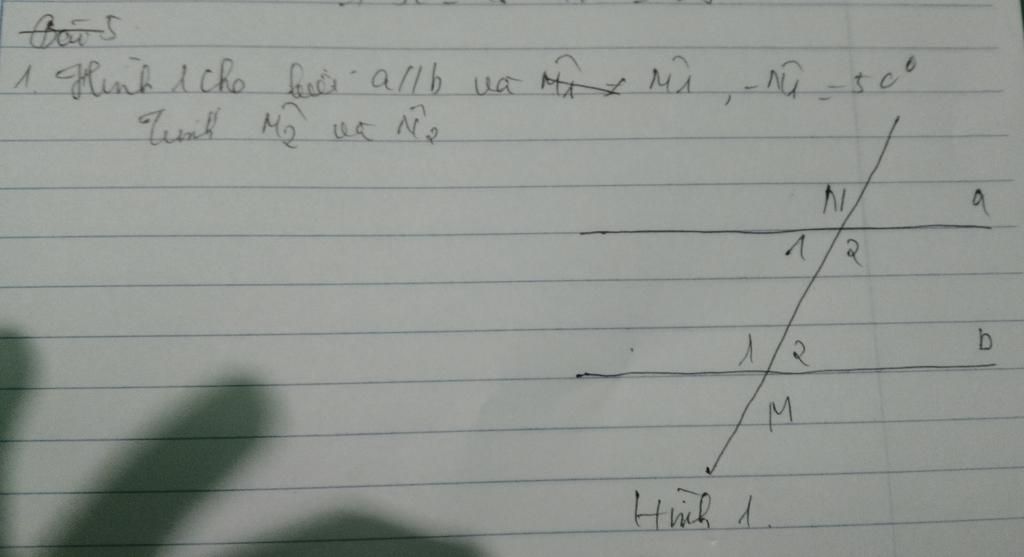 Bài 5
1. Hình 1 cho biết a//b và M̂1 - N̂1 = 50°
Tính M̂2 và N̂2
N a
1 2
1 2 b
M
Hình 1.